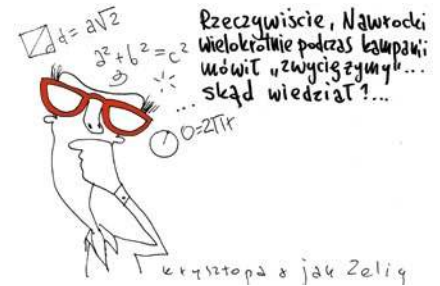 d = a√2
a² + b² = c²
Rzeczywiście, Nawrocki
wielokrotnie podczas kampanii
mówił „zwyciężymy"...
skąd wiedział?...
...
O=2πr
jak Zelig